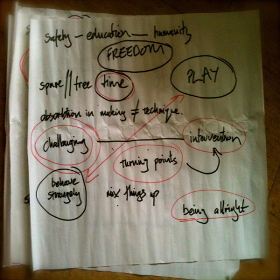 safety - education - humanity
FREEDOM
PLAY
spare // free time
absorbtion in making ≠ technique.
challenging
intervention
turning points
behave strangely
mix things up
being allright